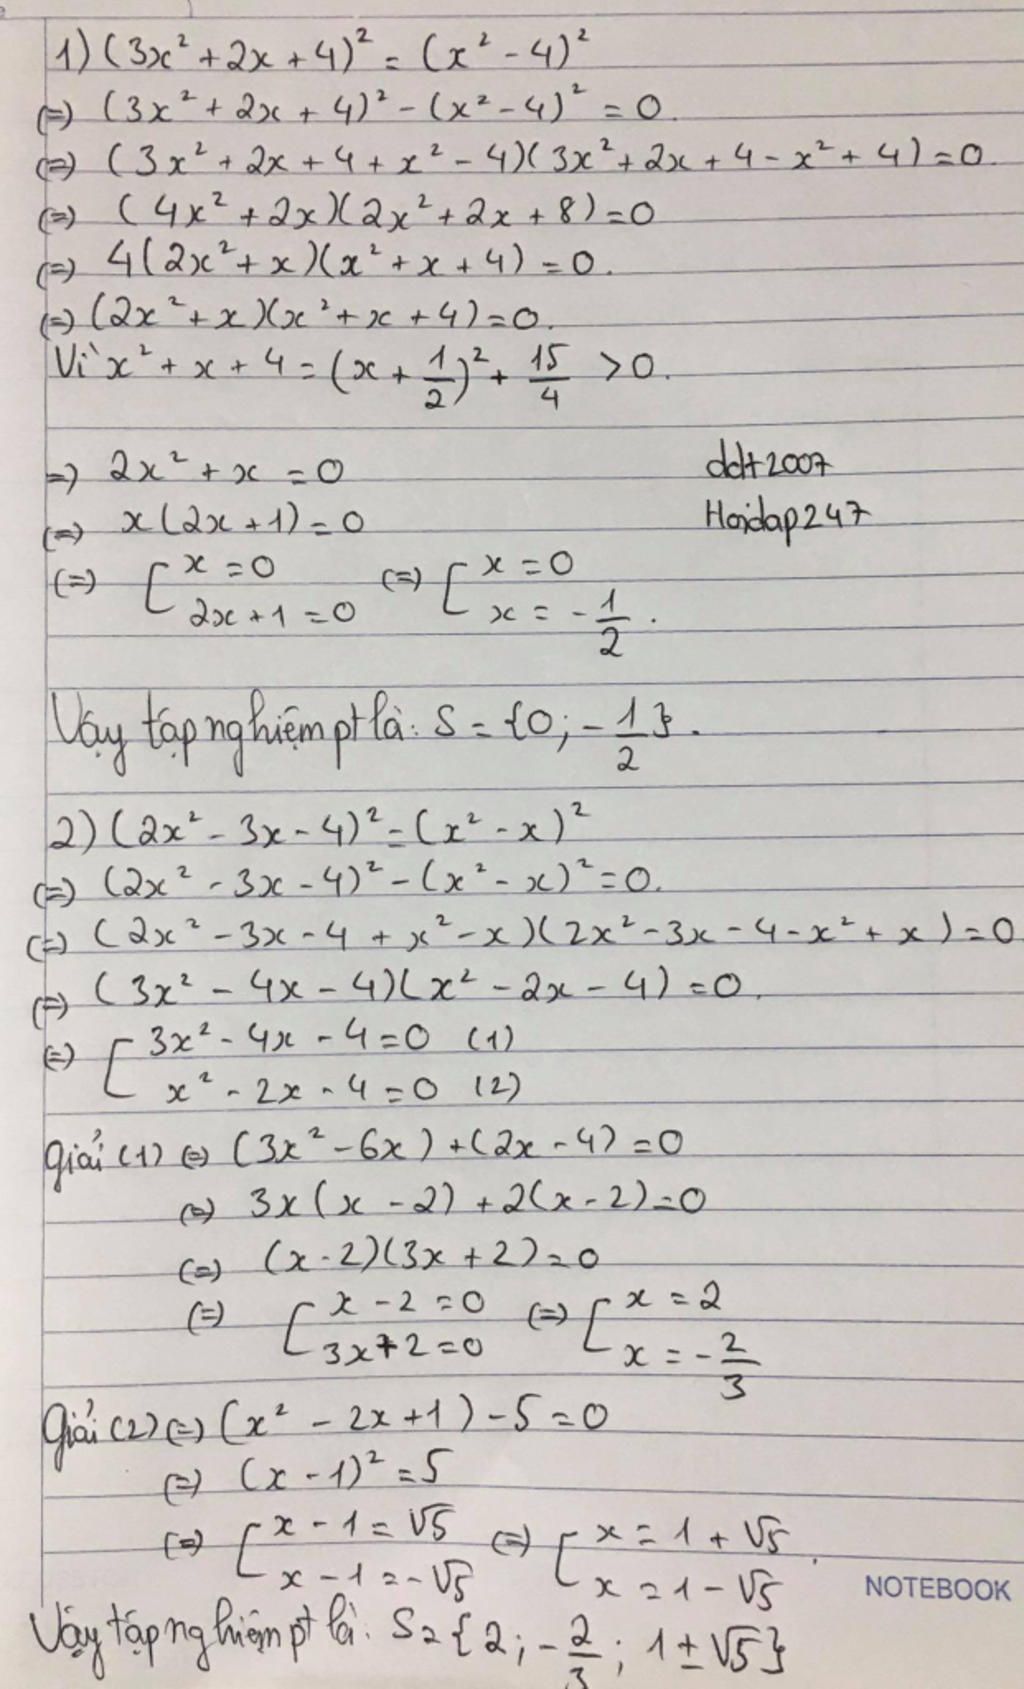 1) (3x² + 2x + 4)² = (x² - 4)²
(=) (3x² + 2x + 4)² - (x² - 4)² = 0.
(=) (3x² + 2x + 4 + x² - 4)(3x² + 2x + 4 - x² + 4) = 0.
(=) (4x² + 2x)(2x² + 2x + 8) = 0
(=) 4(2x² + x)(x² + x + 4) = 0.
(=) (2x² + x)(x² + x + 4) = 0.
Vì x² + x + 4 = (x + 1/2)² + 15/4 > 0.
=) 2x² + x = 0 ddt2007
(=) x(2x + 1) = 0 Hoidap247
(=) [ x = 0 (=) [ x = 0
2x + 1 = 0 x = - 1/2 .
Vậy tập nghiệm pt là: S = {0; - 1/2}.
2) (2x² - 3x - 4)² = (x² - x)²
(=) (2x² - 3x - 4)² - (x² - x)² = 0.
(=) (2x² - 3x - 4 + x² - x)(2x² - 3x - 4 - x² + x) = 0
(=) (3x² - 4x - 4)(x² - 2x - 4) = 0.
(=) [ 3x² - 4x - 4 = 0 (1)
x² - 2x - 4 = 0 (2)
Giải (1) (=) (3x² - 6x) + (2x - 4) = 0
(=) 3x(x - 2) + 2(x - 2) = 0
(=) (x - 2)(3x + 2) = 0
(=) [ x - 2 = 0 (=) [ x = 2
3x + 2 = 0 x = - 2/3
Giải (2) (=) (x² - 2x + 1) - 5 = 0
(=) (x - 1)² = 5
(=) [ x - 1 = √5 (=) [ x = 1 + √5 .
x - 1 = - √5 x = 1 - √5
NOTEBOOK
Vậy tập nghiệm pt là: S = {2; - 2/3; 1 ± √5}